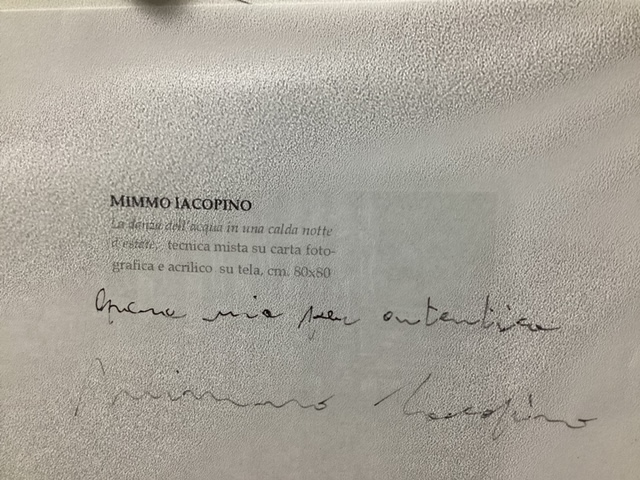 MIMMO IACOPINO
La danza dell'acqua in una calda notte
d'estate, tecnica mista su carta foto-
grafica e acrilico su tela, cm. 80x80
Opera mia per autentica
Mimmo Iacopino